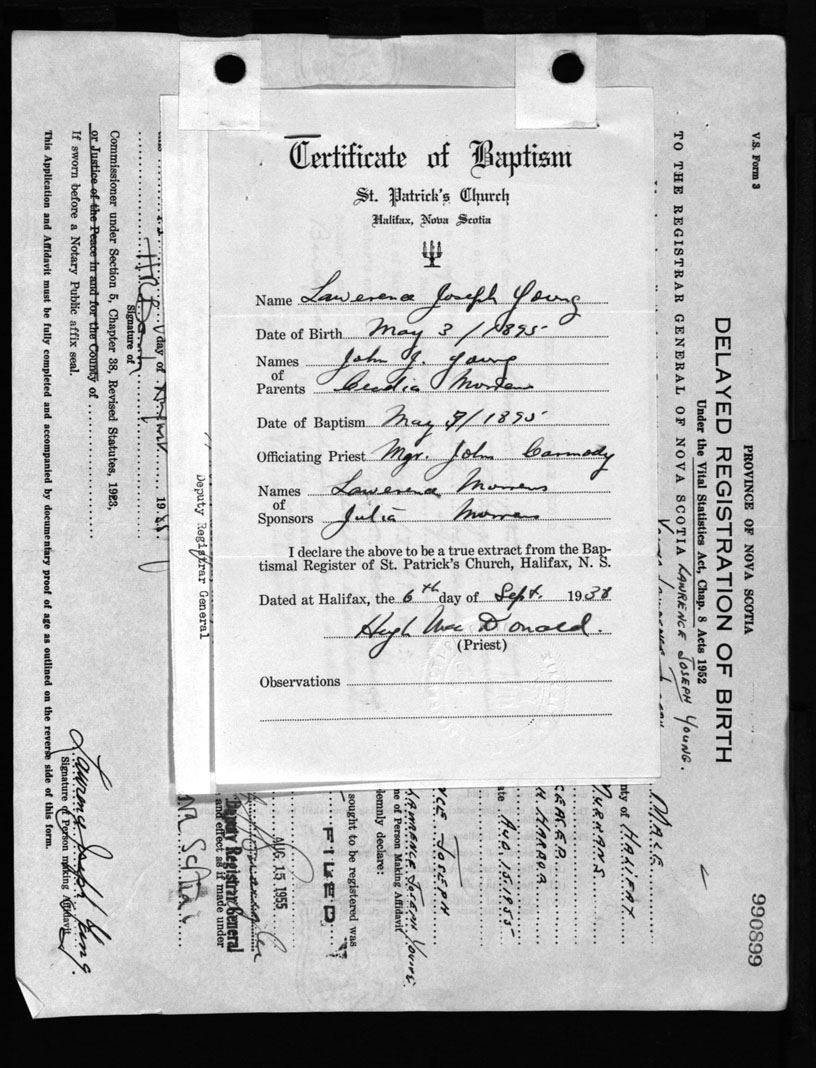 Certificate of Baptism
St. Patrick's Church
Halifax, Nova Scotia
Name Lawerence Joseph Young
Date of Birth May 3 / 1895
Names of Parents John J. Young
Morrens
Date of Baptism May / 1895
Officiating Priest Mgr. John Carmody
Names of Sponsors Lawerence Morrens
Julia Morrens
I declare the above to be a true extract from the Bap-
tismal Register of St. Patrick's Church, Halifax, N. S.
Dated at Halifax, the 6th day of Sept. 1938
Hugh Mac Donald.
(Priest)
Observations
V.S. Form 3
PROVINCE OF NOVA SCOTIA
990899
DELAYED REGISTRATION OF BIRTH
Under the Vital Statistics Act, Chap. 8 Acts 1952
TO THE REGISTRAR GENERAL OF NOVA SCOTIA LAWRENCE JOSEPH YOUNG.
MALE
nty of HALIFAX
HARBOR
ate AUG. 15. 1955
JOSEPH
LAWRENCE JOSEPH YOUNG.
me of Person Making Affidavit
lemnly declare:
sought to be registered was
FILED
AUG. 15 1955
Deputy Registrar General
and effect as if made under
Deputy Registrar General
day of August 1955
Signature of
Commissioner under Section 5, Chapter 38, Revised Statutes, 1923,
or Justice of the Peace in and for the County of
If sworn before a Notary Public affix seal.
Lawrence Joseph Young.
Signature of Person making Affidavit
This Application and Affidavit must be fully completed and accompanied by documentary proof of age as outlined on the reverse side of this form.